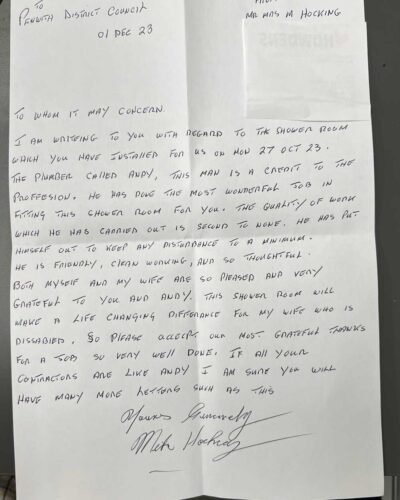 To
Penwith District Council
01 Dec 23
Mr Mrs M Hocking
HOWDENS
To whom it may concern
I am writeing to you with regard to the shower room
which you have installed for us on Mon 27 Oct 23.
The plumber called Andy, this man is a credit to the
proffesion. He has done the most wonderful job in
fitting this shower room for you. The quality of work
which he has carried out is second to none. He has put
himself out to keep any disturbance to a minimum.
He is friendly, clean working, and so thoughtful.
Both myself and my wife are so pleased and very
grateful to you and Andy. This shower room will
make a life changing difference for my wife who is
dissabled. So please accept our most grateful thanks
for a job so very well done. If all your
contractors are like Andy I am sure you will
have many more letters such as this
Yours Sincerely
Hocking